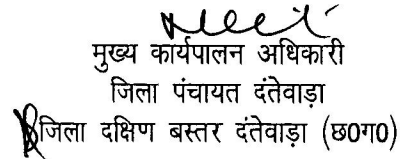 मुख्य कार्यपालन अधिकारी
जिला पंचायत दंतेवाड़ा
जिला दक्षिण बस्तर दंतेवाड़ा (छ0ग0)